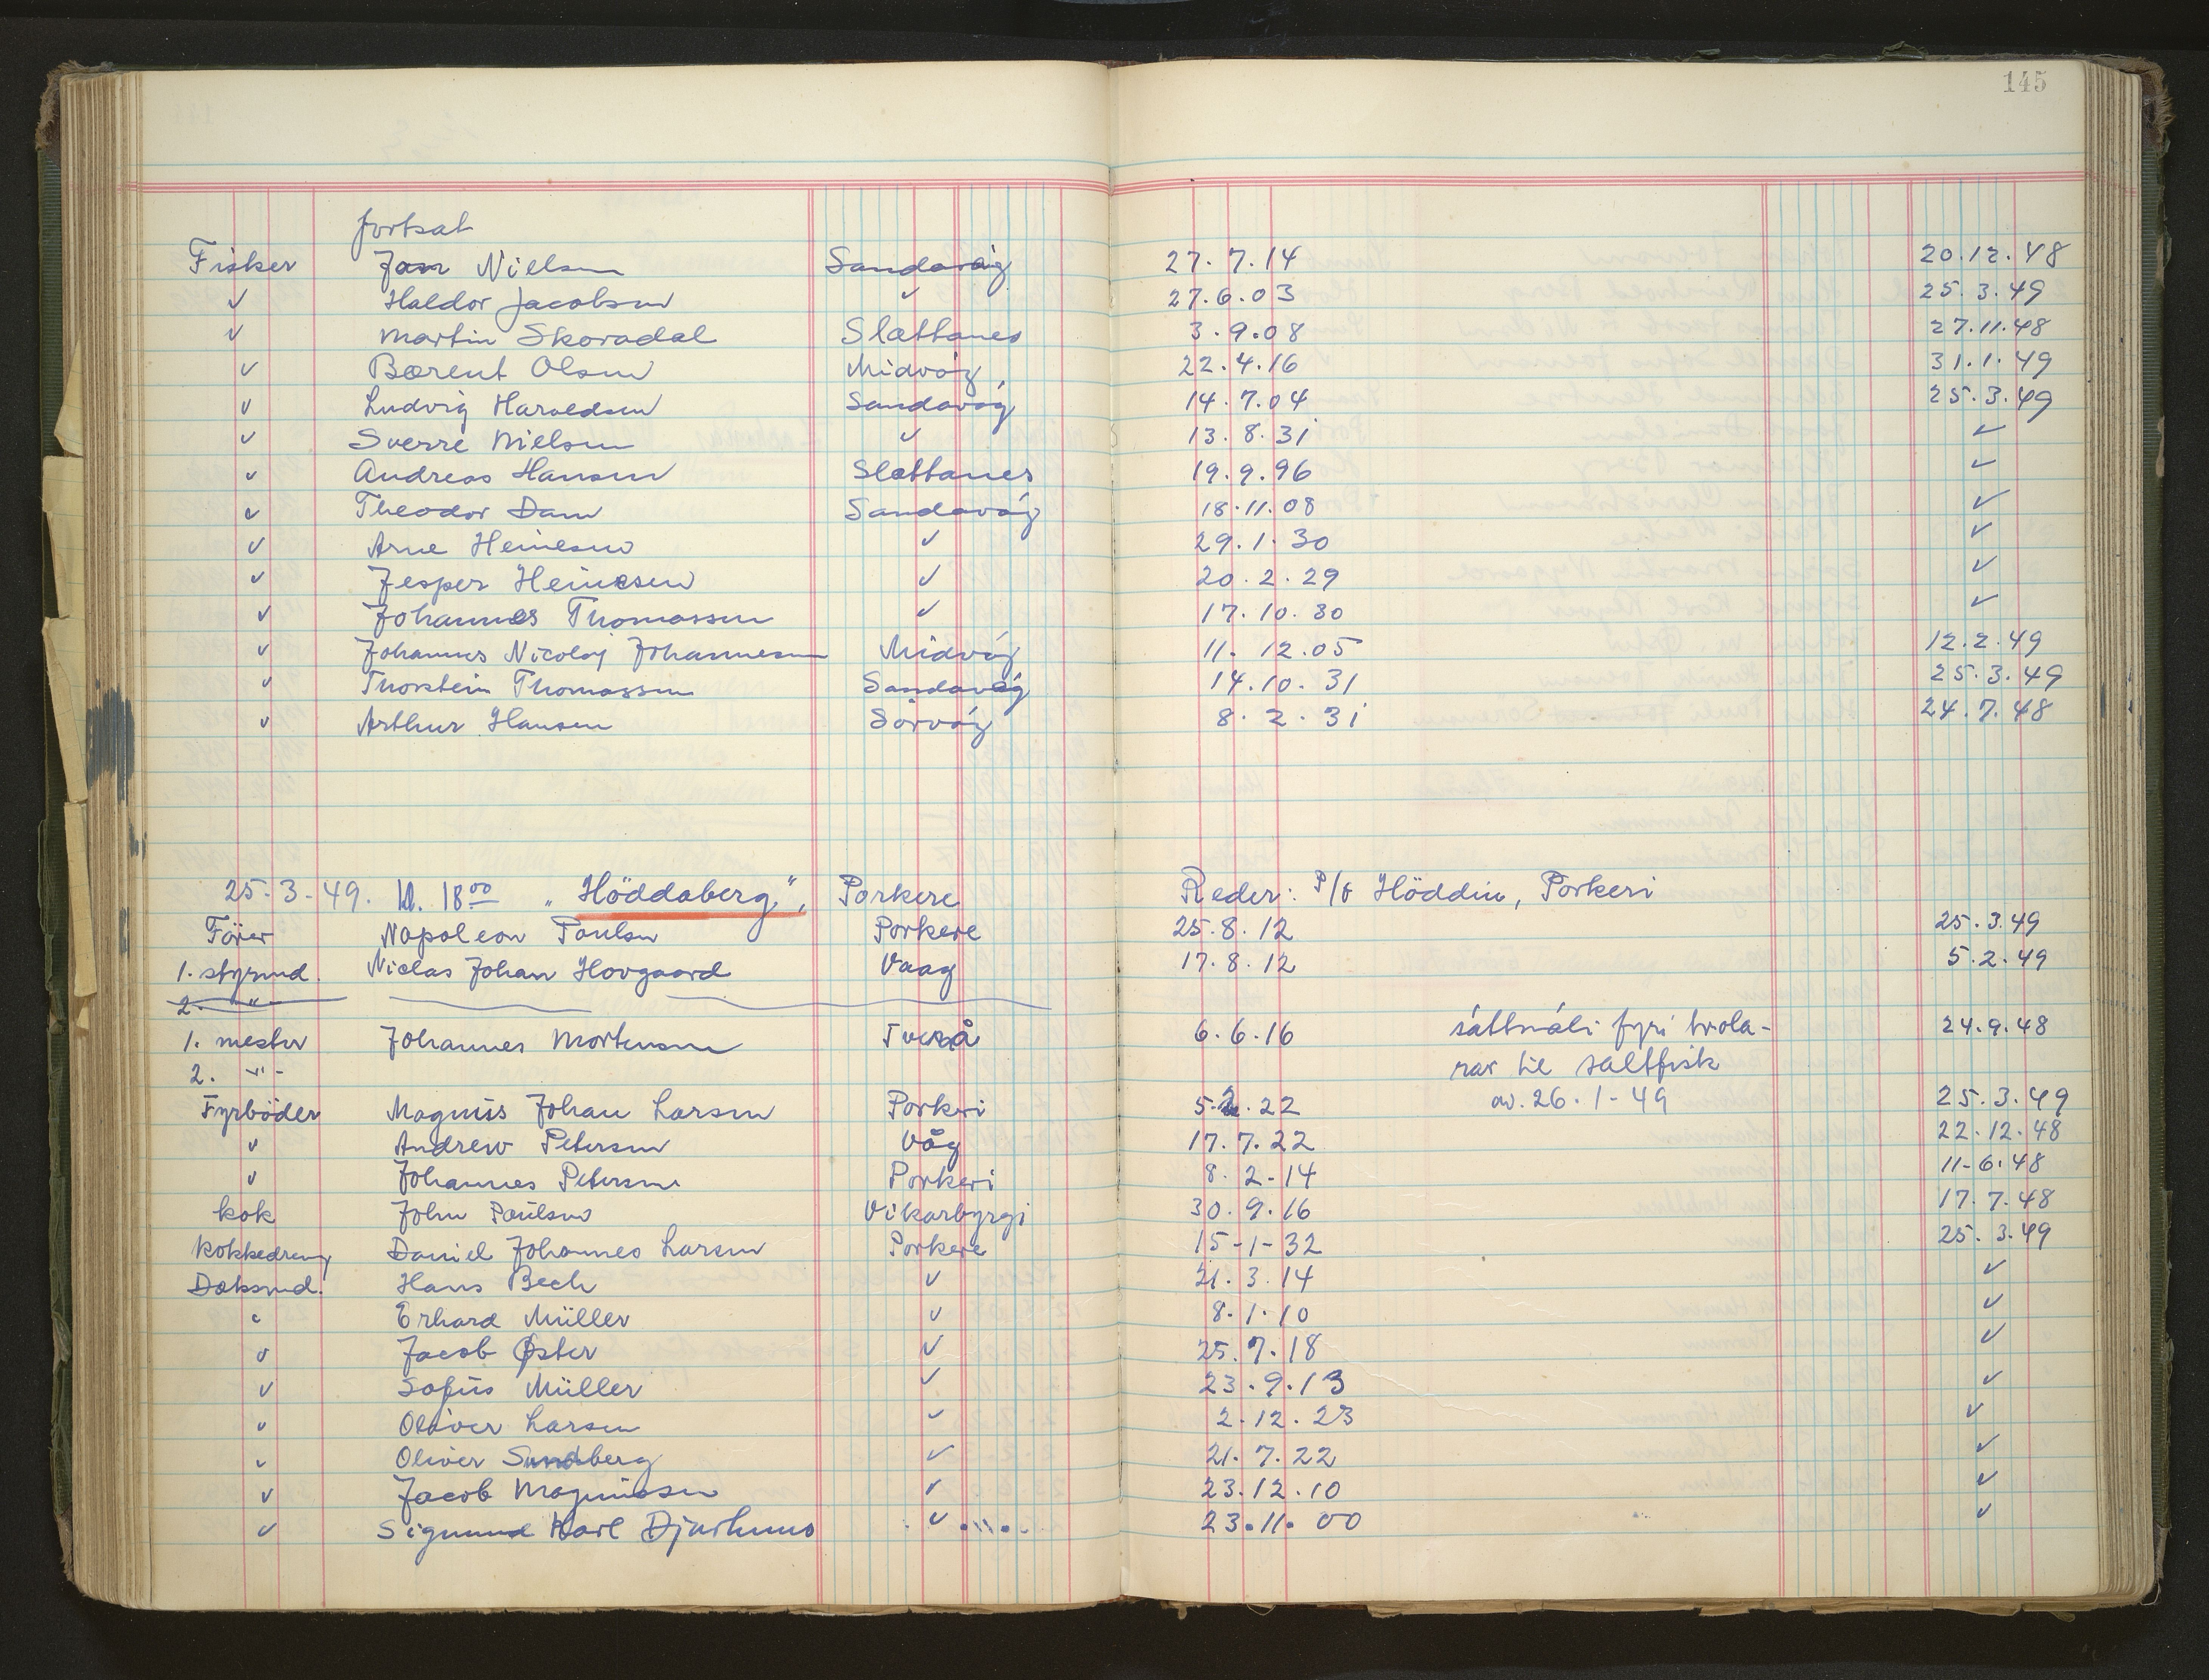 145
fortsat
Fisker Jan Nielsen Sandavág 27.7.14 20.12.48
✓ Haldor Jacobsen ✓ 27.6.03 25.3.49
✓ Martin Skoradal Slættanes 3.9.08 27.11.48
✓ Bærent Olsen Midvág 22.4.16 31.1.49
✓ Ludvig Haraldsen Sandavág 14.7.04 25.3.49
✓ Sverre Nielsen ✓ 13.8.31 ✓
✓ Andreas Hansen Slættanes 19.9.96 ✓
✓ Theodor Dam Sandavág 18.11.08 ✓
✓ Arne Heinesen ✓ 29.1.30 ✓
✓ Jesper Heinesen ✓ 20.2.29 ✓
✓ Johannes Thomassen ✓ 17.10.30 ✓
✓ Johannes Nicolaj Johannesen Midvág 11.12.05 12.2.49
✓ Thorstein Thomassen Sandavág 14.10.31 25.3.49
✓ Arthur Hansen Sörvág 8.2.31 24.7.48
25.3-49. kl. 18⁰⁰ "Höddaberg", Porkere Reder: P/f Höddin, Porkeri
Förer Napoleon Poulsen Porkere 25.8.12 25.3.49
1. styrmd. Niclas Johan Hovgaard Vaag 17.8.12 5.2.49
2. -"-
1. mester Johannes Mortensen Tverå 6.6.16 sáttmáli fyri trola- 24.9.48
2. -"- rar til saltfisk
Fyrböder Magnus Johan Larsen Porkeri 5.2.22 av. 26.1-49 25.3.49
✓ Andrew Petersen Våg 17.7.22 22.12.48
✓ Johannes Petersen Porkeri 8.2-14 11-6.48
kok John Poulsen Vikarbyrgi 30.9.16 17.7.48
kokkedreng Daniel Johannes Larsen Porkere 15-1-32 25.3.49
Dæksmd. Hans Bech ✓ 21.3.14 ✓
✓ Erhard Müller ✓ 8.1.10 ✓
✓ Jacob Øster ✓ 25.7.18 ✓
✓ Sofus Müller ✓ 23.9.13 ✓
✓ Oliver Larsen ✓ 2.12.23 ✓
✓ Oliver Sundberg ✓ 21.7.22 ✓
✓ Jacob Magnussen ✓ 23.12.10 ✓
✓ Sigmund Karl Djurhuus ✓ 23.11.00 ✓